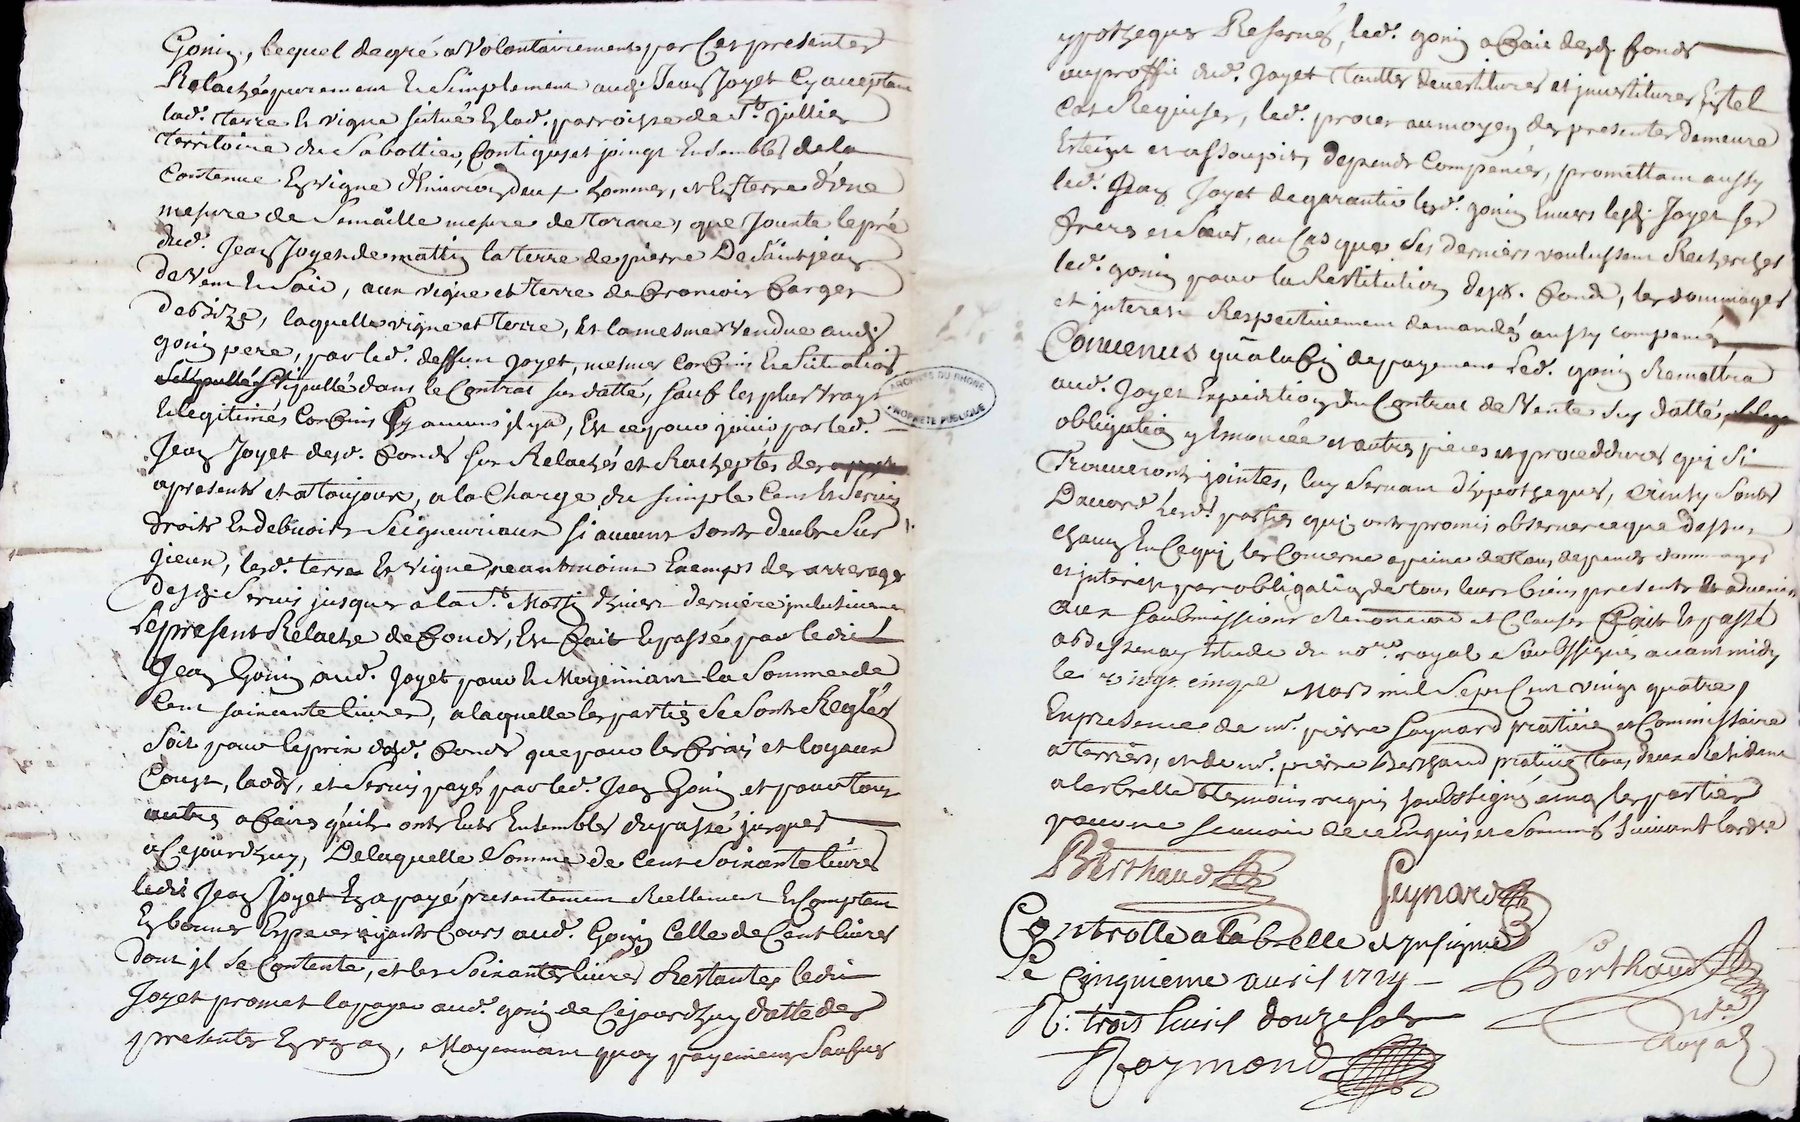 Gonin, lequel de gré a Volontairement par Ces presentes
Relaché purement Et Simplement aud. Jean Joyet Cy acceptant
lad. terre Et vigne scitué En lad. parroisse de St. Jullien
territoire du Sabottier, Contigus et joings Ensembles de la
Contenue En vigne d'Environ deux hommes, et En terre d'une
mesure de Semaille mesure de tarare, que Jouxte le pré
dud. Jean Joyet de mattin la terre de pierre De Saint jean
de vent Et Soir, aux vigne et terre de francois farges
de bize, laquelle vigne et terre, Est la mesme Vendue aud.
gonin pere, par led. deffunt Joyet, mesmes Confins Et Situations
Stipullés dans le Contrat sus datté, sauf les plus vrays
Et legitimes Confins Sy aucuns il y a, Est ce pour jouir par led.
Jean Joyet desd. fonds sus Relachés et Racheptés des
a present et a toujours, a la Charge du simple Cens Et Servis
droits Et debvoirs Seigneuriaux si aucuns sonts deubs Sur
Jceux, lesd. terre Et vigne, neantmoins Exempts des arrerages
desd. Servis jusques a la St. Martin d'hiver derniere inclusivement
Le present Relache de fonds, Est fait Et passé par ledit
Jean Gonin aud. Joyet pour Et Moyennant la Somme de
Cent soixante livres, a laquelle les parties Se Sonts Reglés
Soit pour le prix desd. fonds que pour les frais et loyaux
Couts, laods, et Servis payés par led. Jean Gonin et pour tous
autres afaires qu'ils onts Eus Ensembles du passé jusques
a Cejourdhuy, De laquelle Somme de Cent Soixante livres
ledit Jean Joyet En a payé presentement Reellement Et Comptant
En bonnes Especes ayants Cours aud. Gonin Celle de Cent livres
dont il Se Contente, et les Soixante livres Restantes ledit
Joyet promet la payer aud. gonin de Cejourdhuy datte des
presentes En un an, Moyennant quoy payement Sauf ses
ypotheques Reservés, led. gonin a fait desd. fonds
au proffit dud. Joyet touttes devestitures et jnvestitures En tel
Cas Requises, led. proces au moyen des presentes demeure
Esteint et assoupit, depends Compencés, promettant aussy
led. Jean Joyet de garantir led. gonin Envers lesd. Joyet ses
freres et Soeurs, au Cas que Ses derniers voulussent Rechercher
led. gonin pour la Restitution desd. fonds, les dommages
et interets Respectivement demandés aussy compencés
Convenus qu'a la fin de payement led. gonin Remettra
aud. Joyet Expedition du Contrat de Vente Sus datté,
obligation y Enoncée et autres pieces et proceddures qui Si
Trouveront jointes, luy Servant d'hypotheques, Ainsy Sonts
D'accord lesd. parties qui onts promis observer ce que dessus
chacun En Ce qui les Concerne a peine de tous depends dommages
et interets par obligation de tous leurs biens presents Et advenir
aux Soubmissions Renonciations et Clauses fait Et passé
a Estude du nore. royal Soubssigné avant midy
le vingt cinqe Mars mil Sept Cent vingt quatre,
En presence de mr. pierre Guynard praticien et Commissaire
a terriers, et de mr. pierre Berthaud praticien tous deux Residents
a la brelle temoins requis soubssignés non les parties
pour ne scavoir de ce Enquis et Sommés Suivant l'ordce
Berthaud Guynard
Controllé a Labrelle et Insigné
Le Cinquieme avril 1724
R: trois Livres douze sols
Raymond
Berthaud
nre
Royal
ARCHIVES DU RHONE
PROPRIETE PUBLIQUE